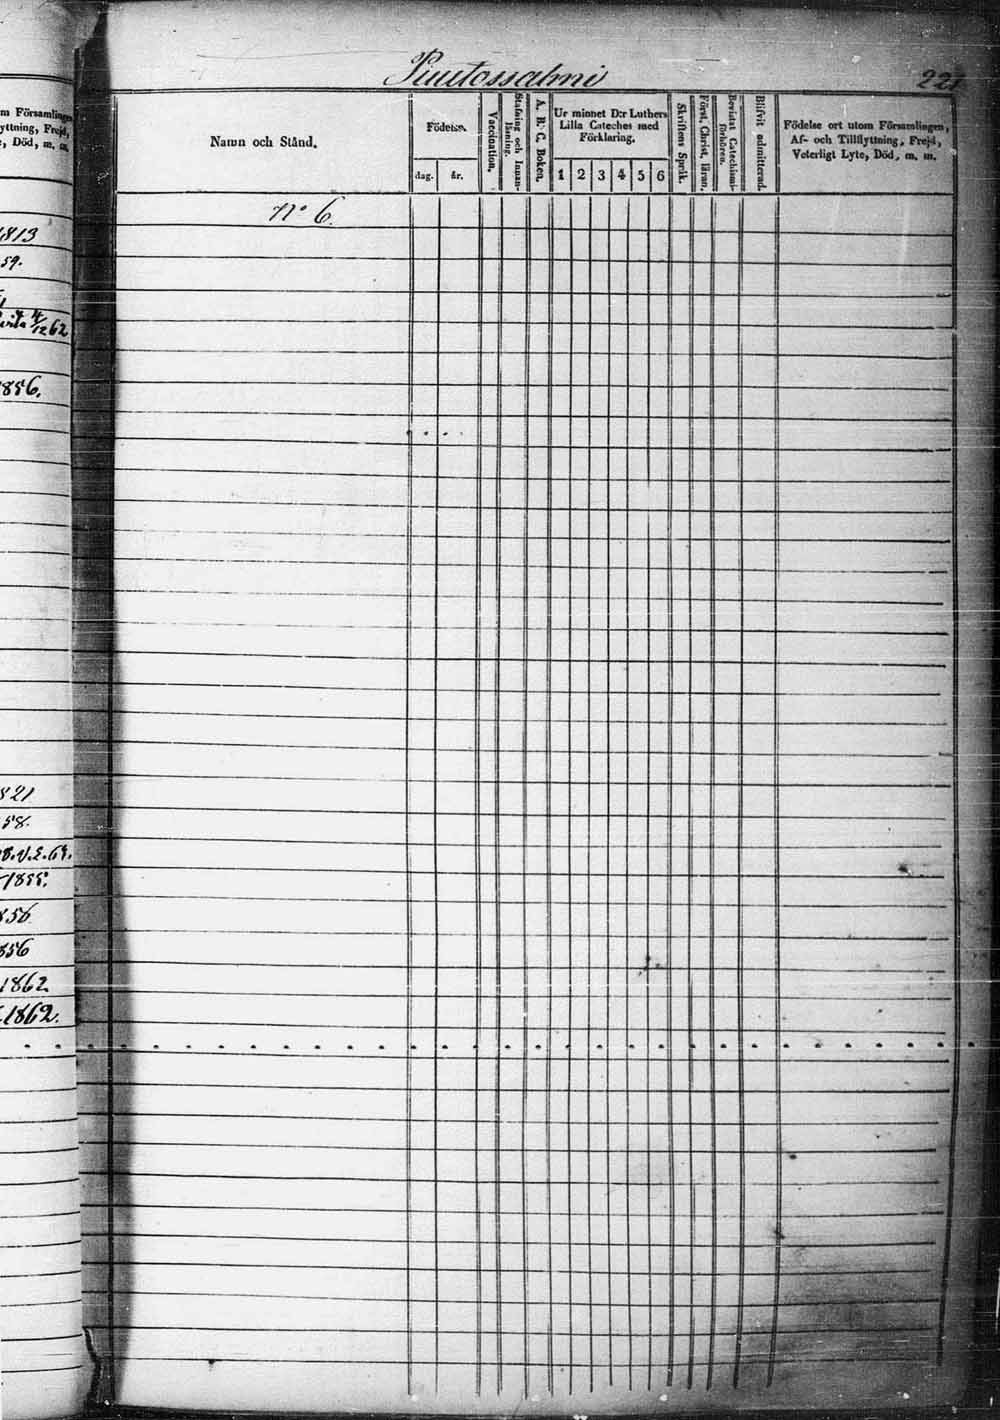 Piuttossalmi
221
m Församlingen
yttning, Frejd,
, Död, m. m.
Namn och Stånd.
Födelse.
dag.
år.
Vaccination.
Stafning och Innan-
läsning.
A. B. C. Boken.
Ur minnet D:r Luthers
Lilla Cateches med
Förklaring.
1 2 3 4 5 6
Skriftens Språk.
Först. Christ. läran.
Bevistat Catechismi-
förhören.
Blifvit admitterad.
Födelse ort utom Församlingen,
Af- och Tillflyttning, Frejd,
Veterligt Lyte, Död, m. m.
No 6.
1813
59.
4/12 62
1856.
821
58.
1855.
856
856
1862
1862.